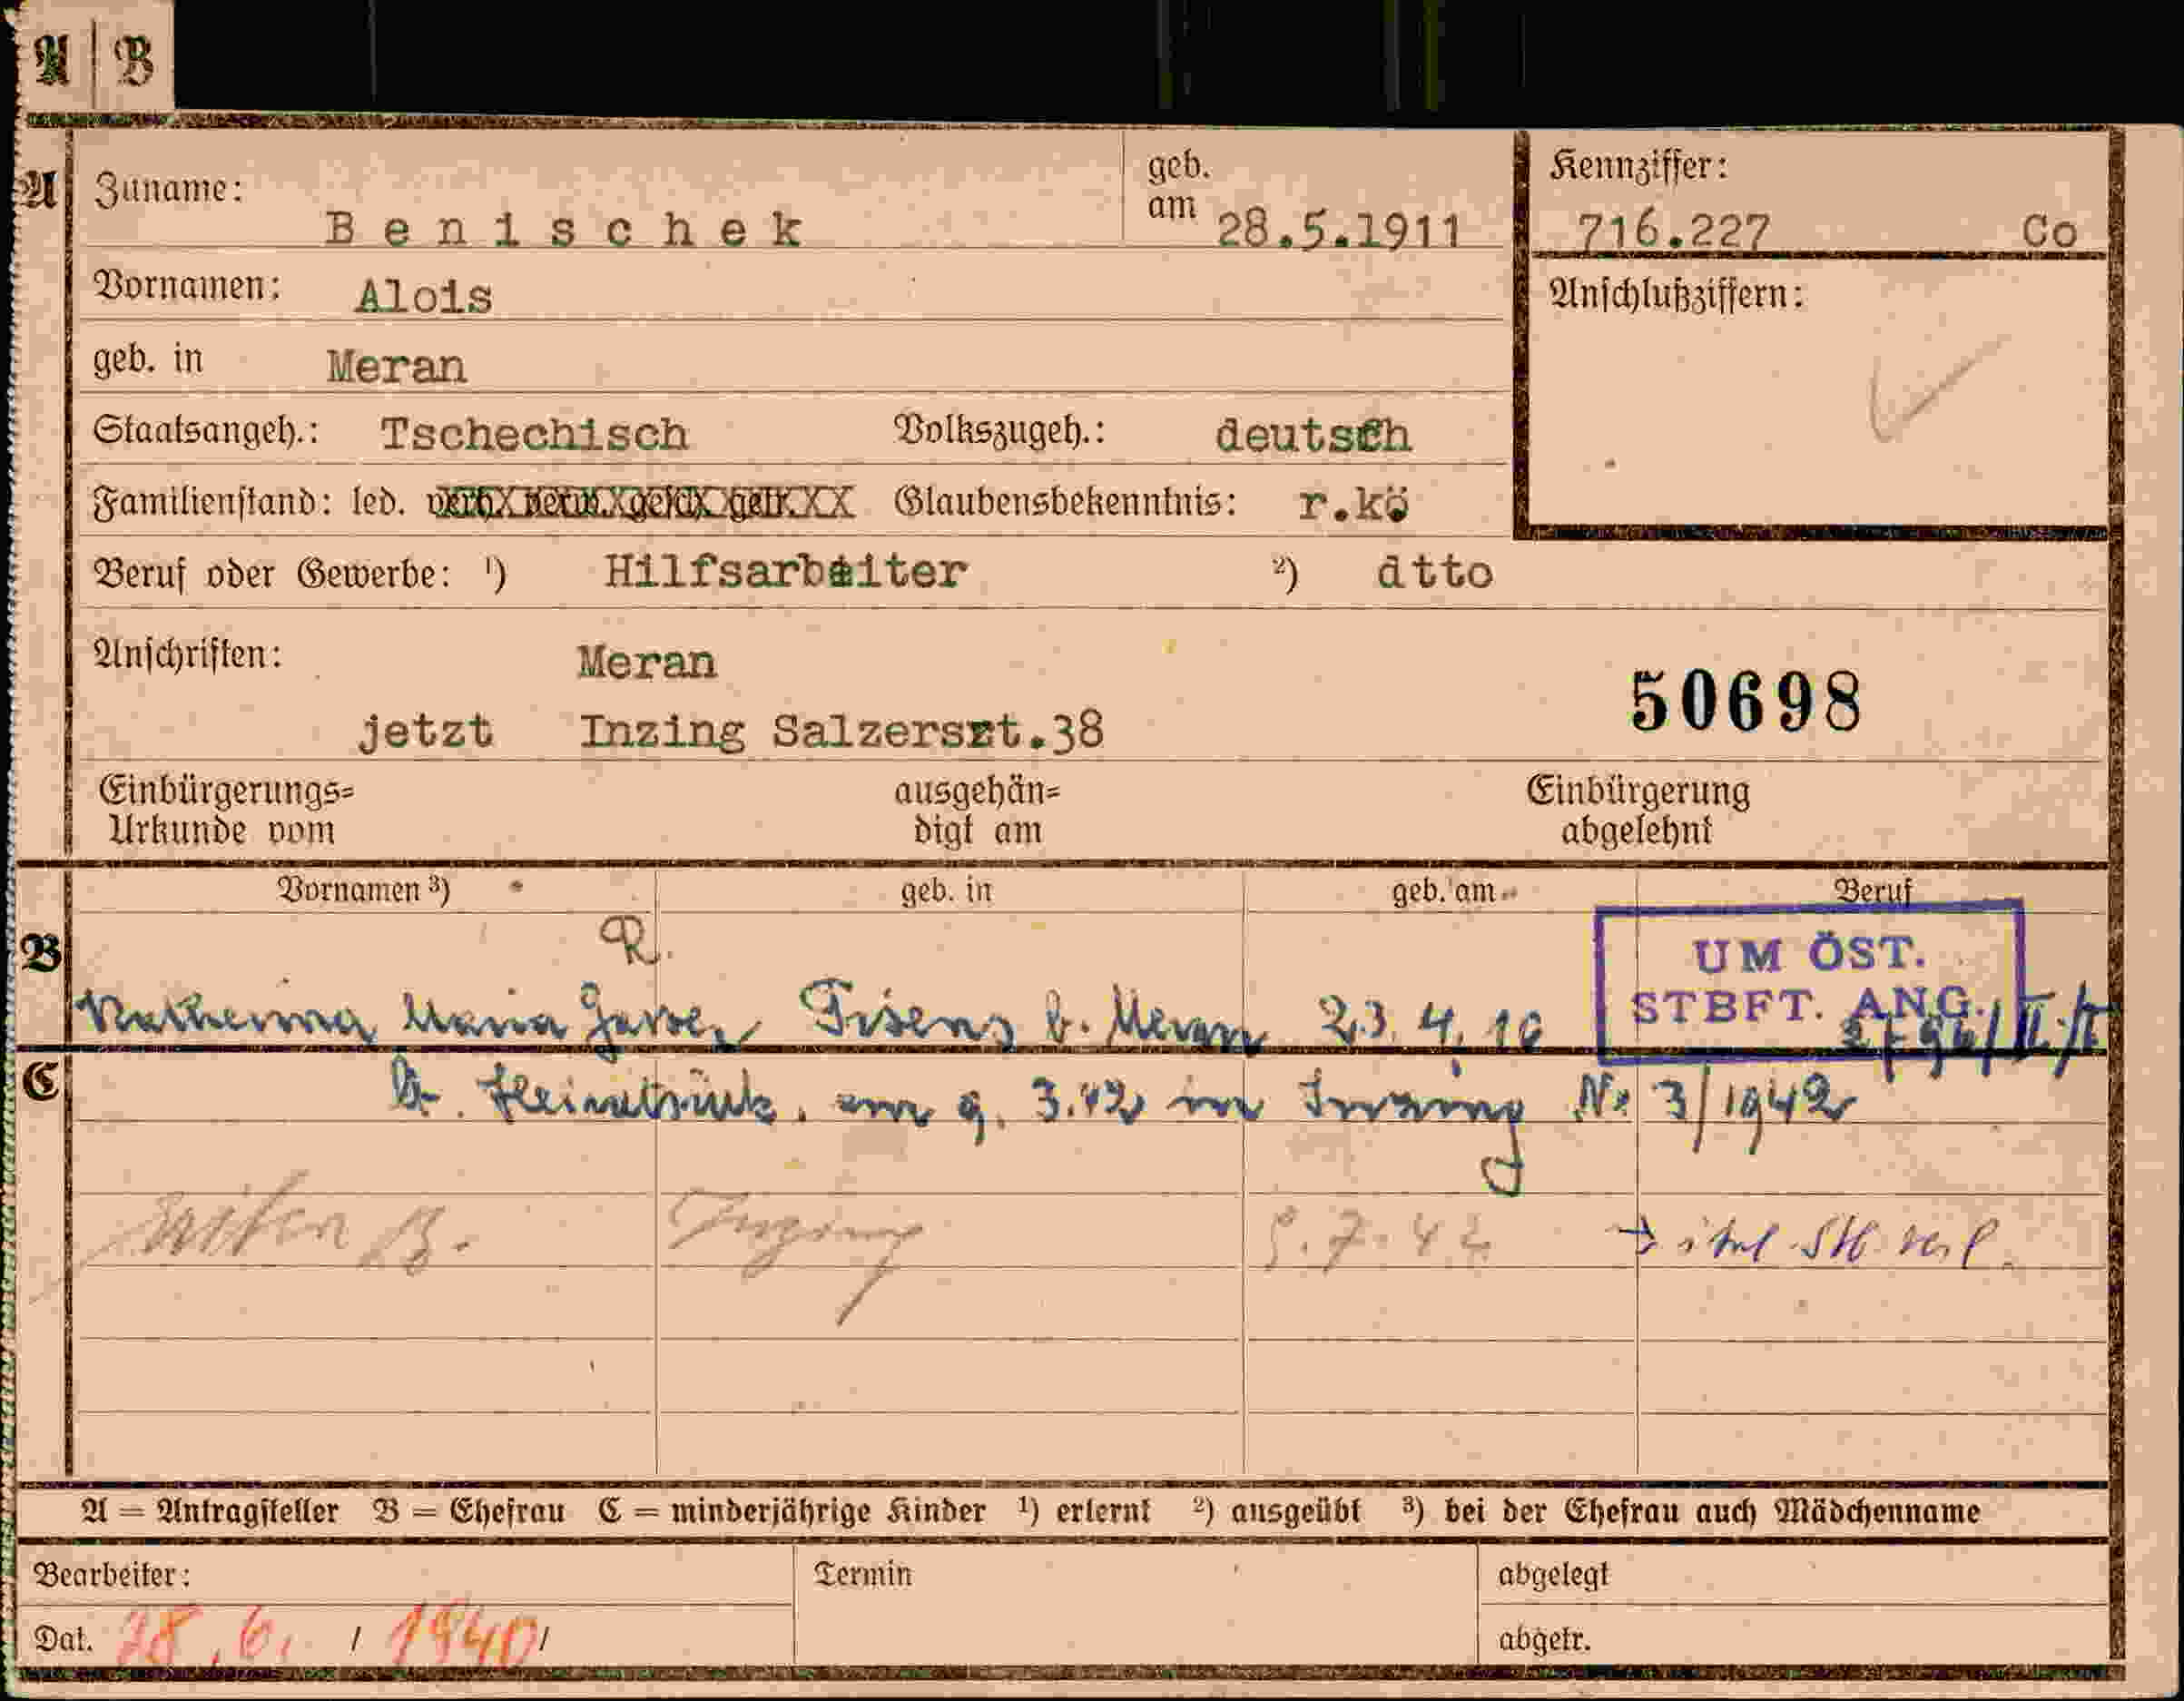 A | B
A Zuname: Benischek geb. am 28.5.1911 Kennziffer: 716.227 Co
Vornamen: Alois Anschlußziffern:
geb. in Meran
Staatsangeh.: Tschechisch Volkszugeh.: deutsch
Familienstand: led. verh. verw. gesch. getr. Glaubensbekenntnis: r.kö
Beruf oder Gewerbe: ¹) Hilfsarbeiter ²) dtto
Anschriften: Meran
50698
jetzt Inzing Salzerszt.38
Einbürgerungs= Urkunde vom ausgehän= digt am Einbürgerung abgelehnt
Vornamen ³) geb. in geb. am Beruf
B R.
UM ÖST.
STBFT. ANG.
Katherina Maria Tisens b. Meran 23. 4. 16
C am 9. 3.42 in Inzing Nr 3/1942
B. Inzing 9.7.42
A = Antragsteller B = Ehefrau C = minderjährige Kinder ¹) erlernt ²) ausgeübt ³) bei der Ehefrau auch Mädchenname
Bearbeiter: Termin abgelegt
Dat. 28.6. / 1940/ abgetr.